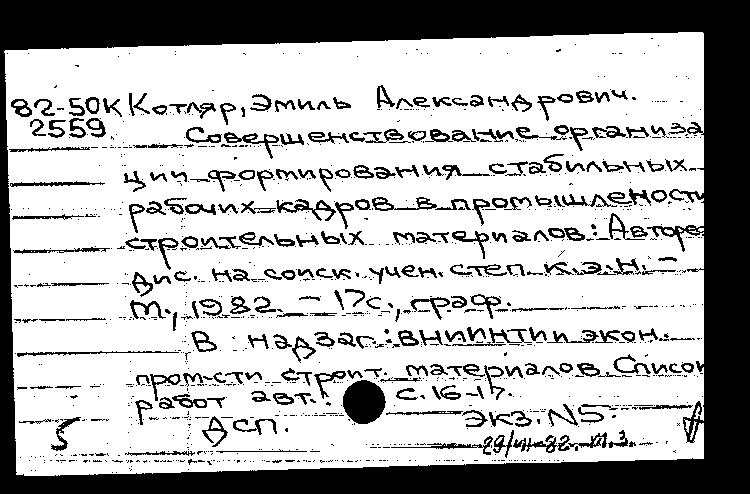 82-50К Котляр, Эмиль Александрович.
2559
Совершенствование организа
ции формирования стабильных
рабочих кадров в промышлености
строительных материалов: Авторе
дис. на соиск. учен. степ. к.э.н. –
М., 1982. – 17с., граф.
В надзаг.: ВНИИНТИ и экон.
пром-сти строит. материалов. Список
работ авт.: с. 16-17.
ДСП. экз. N5.
5